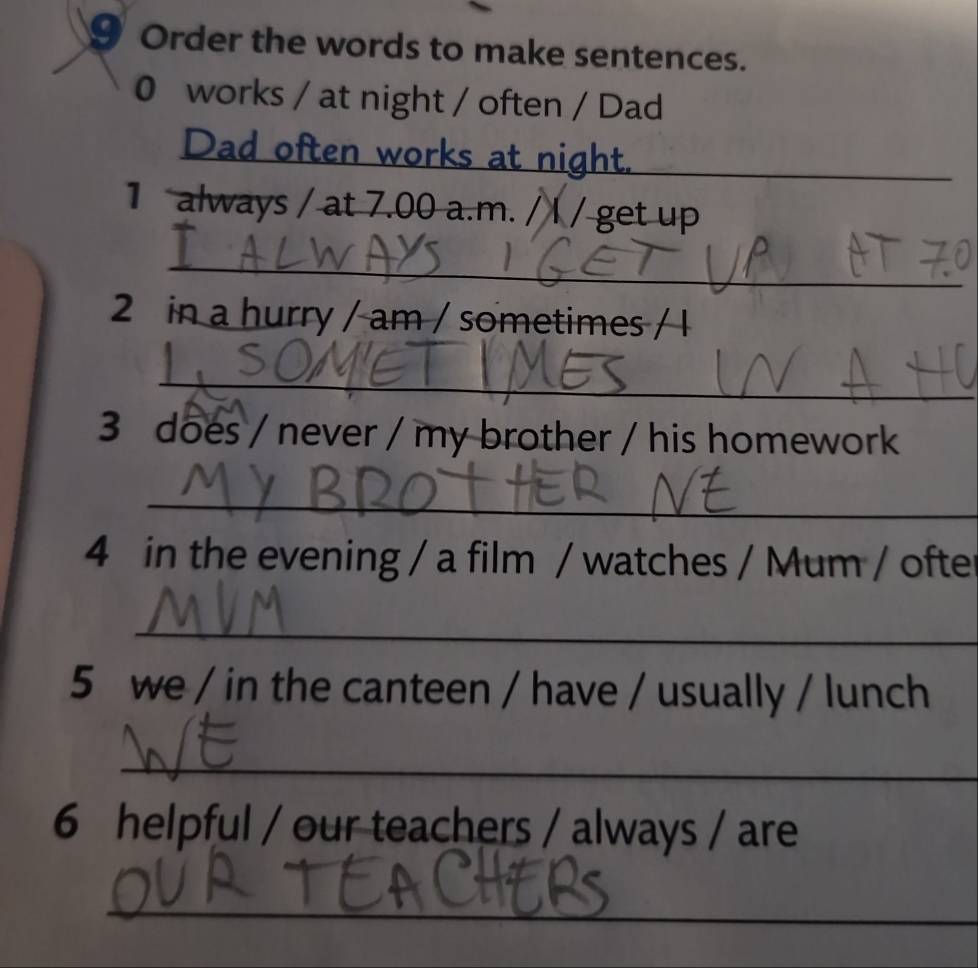 9 Order the words to make sentences.
0 works / at night / often / Dad
Dad often works at night.
1 always / at 7.00 a.m. / I / get up
I ALWAYS I GET UP AT 7.0
2 in a hurry / am / sometimes / I
I SOMETIMES IN A HU
AM
3 does / never / my brother / his homework
MY BROTHER NE
4 in the evening / a film / watches / Mum / ofte
MUM
5 we / in the canteen / have / usually / lunch
WE
6 helpful / our teachers / always / are
OUR TEACHERS